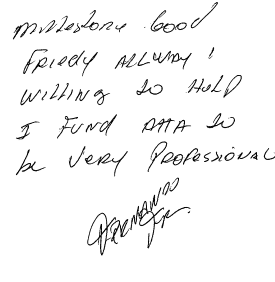 Milestone Good
Friedy Allways
willing to Help
I Fund  to
be very Professional
Fernando
Jr.